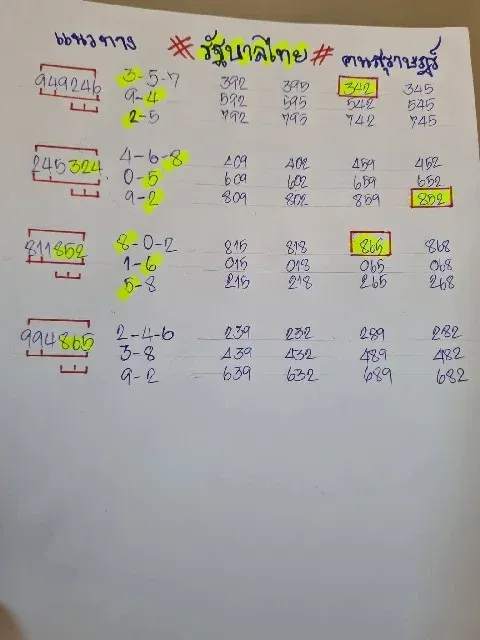 แนวทาง # รัฐบาลไทย # คนสุราษฎร์
949246 3-5-7 392 395 342 345
9-4 592 595 542 545
2-5 792 795 742 745
245324 4-6-8 409 402 459 452
0-5 609 602 659 652
9-2 809 802 859 852
811852 8-0-2 815 818 865 868
1-6 015 018 065 068
5-8 215 218 265 268
994865 2-4-6 239 232 289 282
3-8 439 432 489 482
9-2 639 632 689 682